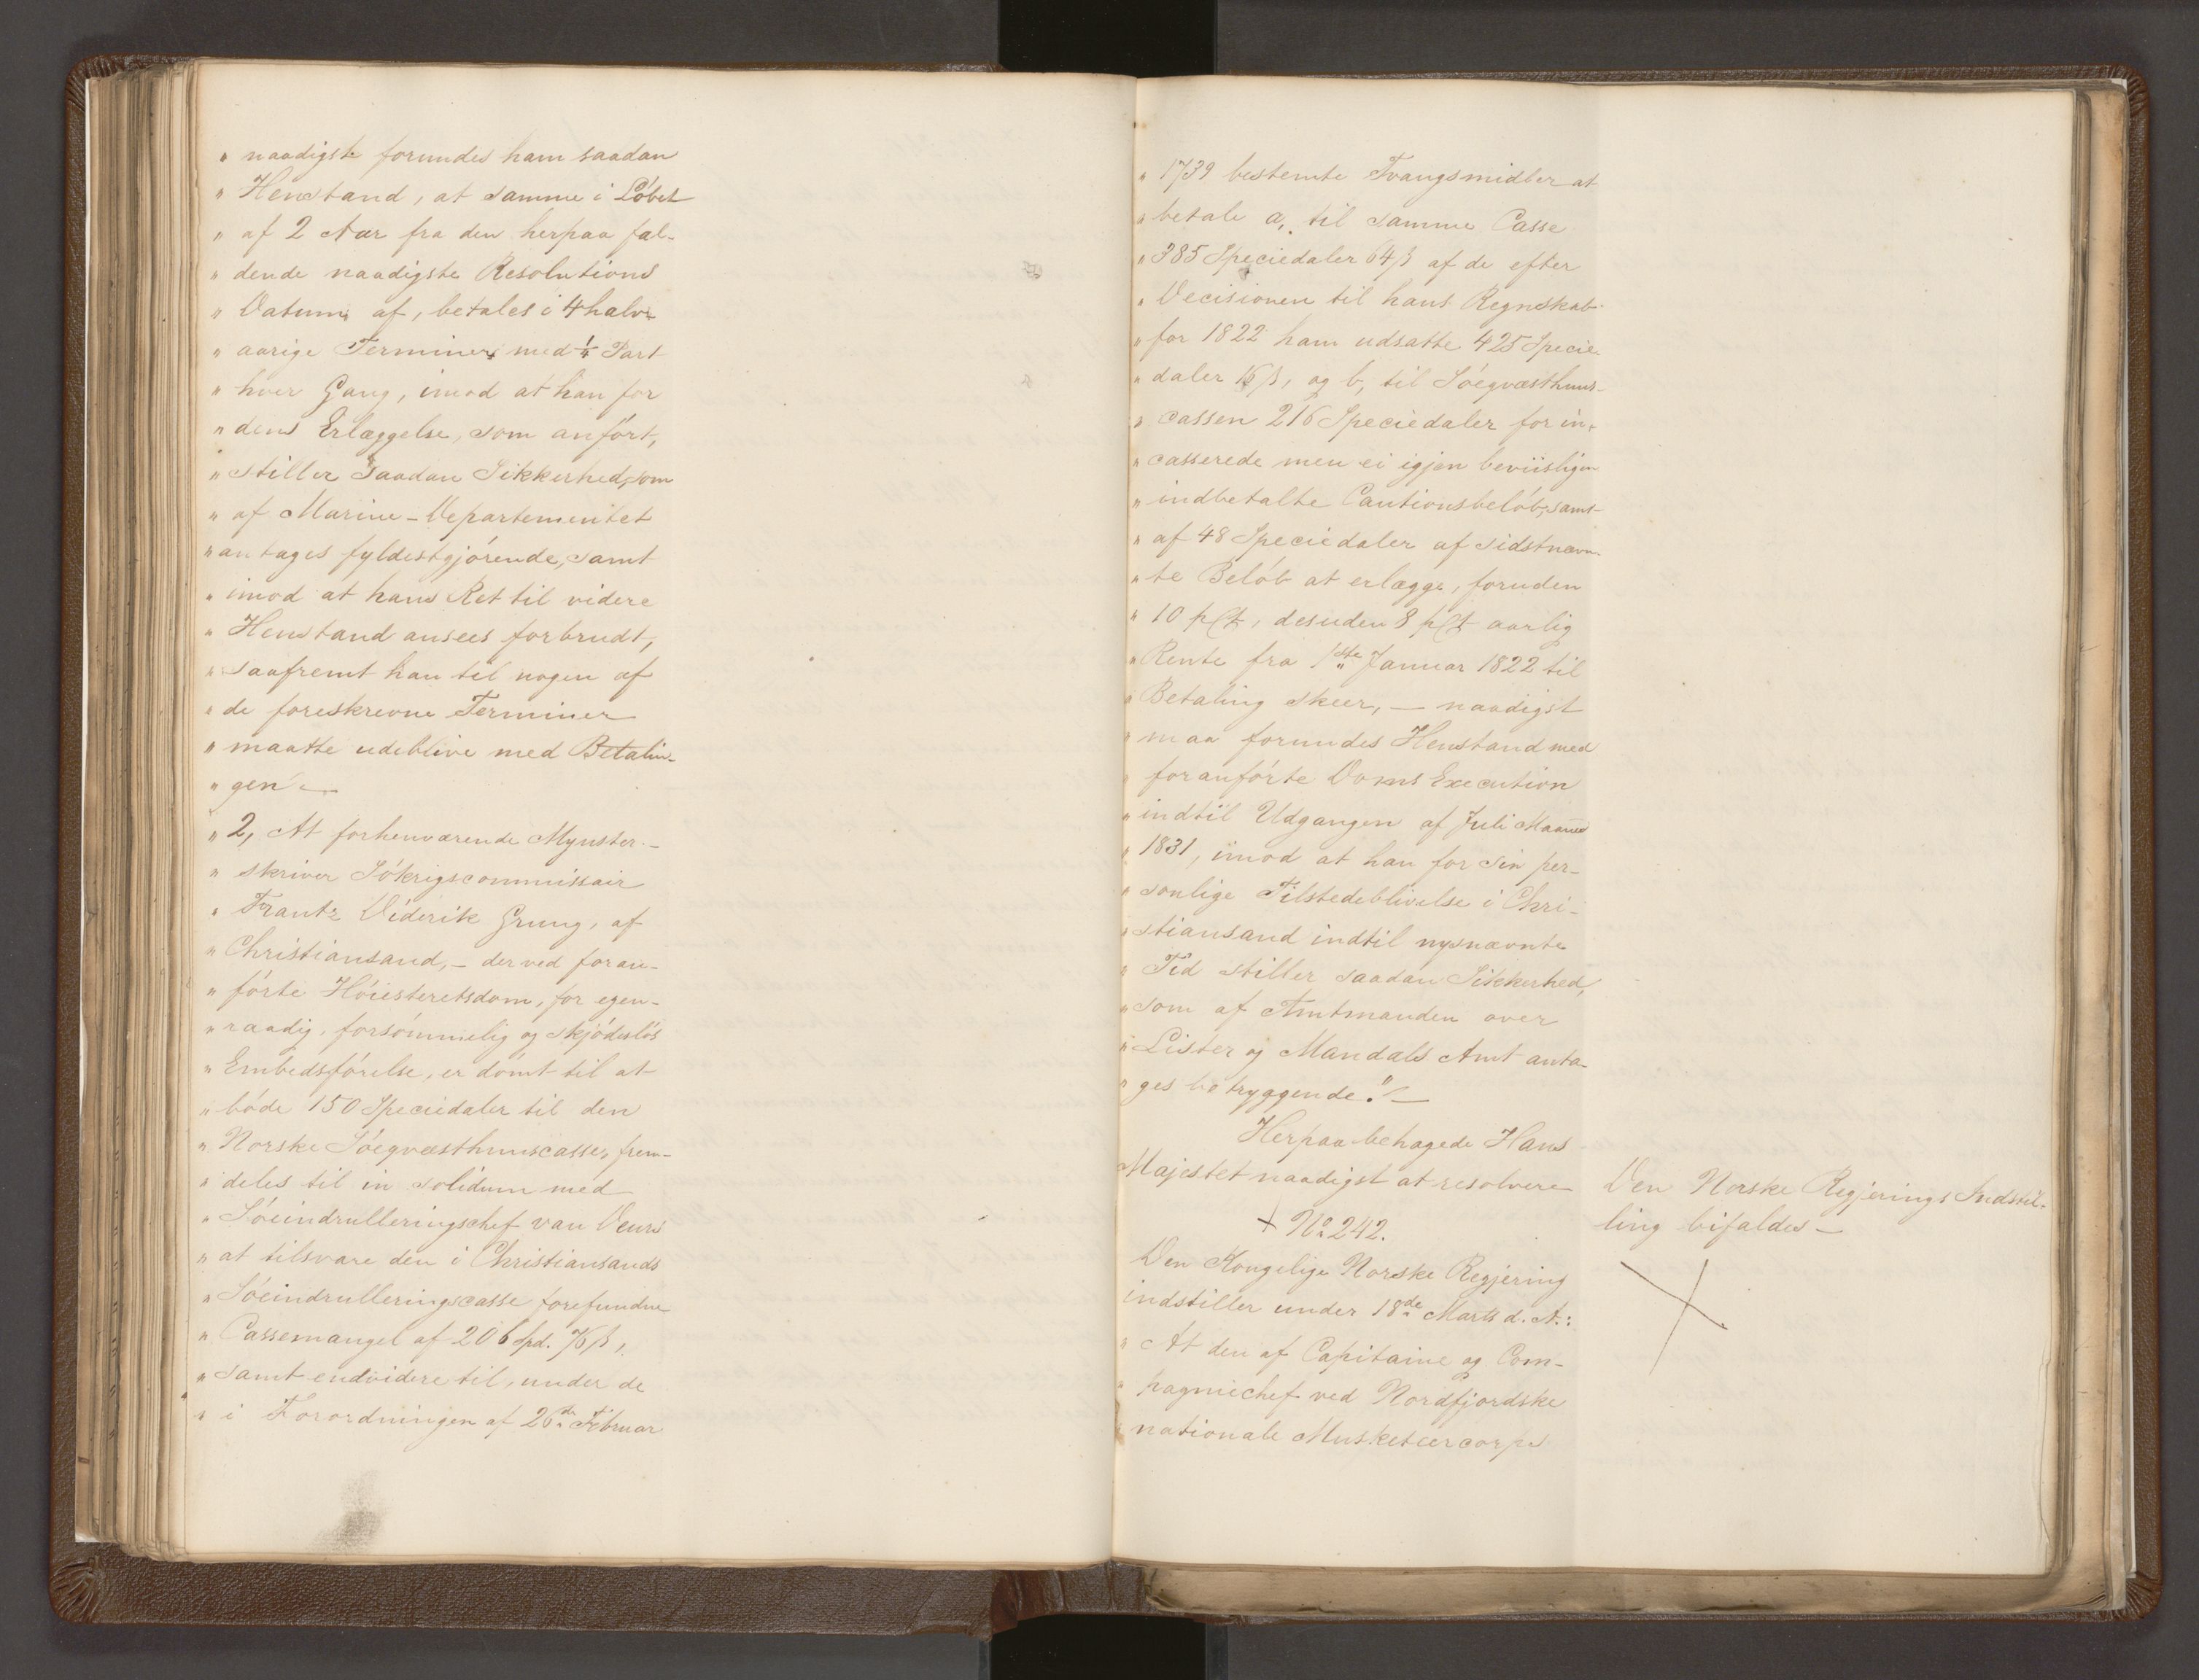 " naadigste forundes ham saadan
" Henstand, at samme i Löbet
" af 2 Aar fra den herpaa fal-
" dende naadigste Resolutions
" Datum af, betales i 4 halv-
" aarige Terminer med 1/4 Part
" hver Gang, imod at han for
" dens Erlæggelse, som anfört,
" stiller saadan Sikkerhed, som
" af Marine-Departementet
" antages fyldestgjörende, samt
" imod at hans Ret til videre
" Henstand ansees forbrudt,
" saafremt han til nogen af
" de foreskrevne Terminer
" maatte udeblive med Betalin-
" gen.
" 2, At forhenværende Mynster-
" skriver Sökrigscommissair
" Frantz Diderik Grung, af
" Christiansand, – der ved foran-
" förte Höiesteretsdom, for egen-
" raadig, forsömmelig og skjödeslös
" Embedsförelse, er dömt til at
" böde 150 Speciedaler til den
" Norske Söeqvæsthuuscasse, frem-
" deles til in solidum med
" Söeindrulleringschef van Deurs
" at tilsvare den i Christiansands
" Söeindrulleringscasse forefundne
" Cassemangel af 206 Spd. 76 ß,
" samt endvidere til, under de
" i Forordningen af 26de Februar
" 1739 bestemte Tvangsmidler at
" betale a, til samme Casse
" 385 Speciedaler 64 ß af de efter
" Decisionen til hans Regnskab
" for 1822 ham udsatte 425 Specie
" daler 16 ß, og b, til Söeqvæsthuus-
" cassen 216 Speciedaler for in-
" casserede men ei igjen beviisligen
" indbetalte Cautionsbelöb, samt
" af 48 Speciedaler af sidstnævn-
" te Belöb at erlægge, foruden
" 10 pCt, desuden 8 pCt aarlig
" Rente fra 1ste Januar 1822 til
" Betaling skeer, – naadigst
" maa forundes Henstand med
" foranförte Doms Execution
" indtil Udgangen af Juli Maaned
" 1831, imod at han for sin per-
" sonlige Tilstedeblivelse i Chri-
" stiansand indtil nysnævnte
" Tid stiller saadan Sikkerhed,
" som af Amtmanden over
" Lister og Mandals Amt anta-
" ges betryggende." –
Herpaa behagede Hans
Majestet naadigst at resolvere
Den Norske Regjerings Indstil-
ling bifaldes –
+ No 242.
Den Kongelige Norske Regjering
indstiller under 18de Marts d. A.:
" At den af Capitaine og Com-
" pagniechef ved Nordfjordske
" nationale Musketeercorps